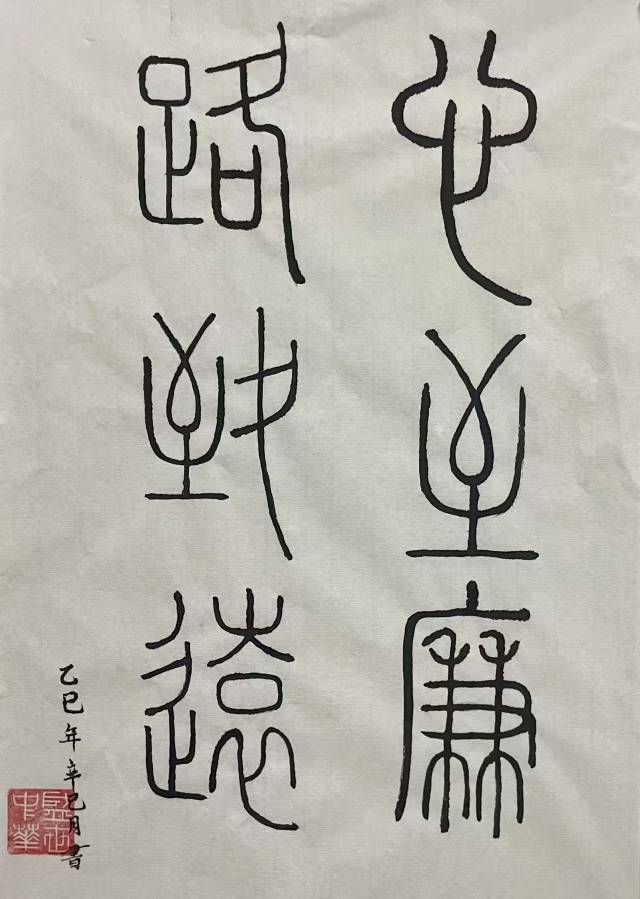 心至廉
路致遠
乙巳年辛巳月書